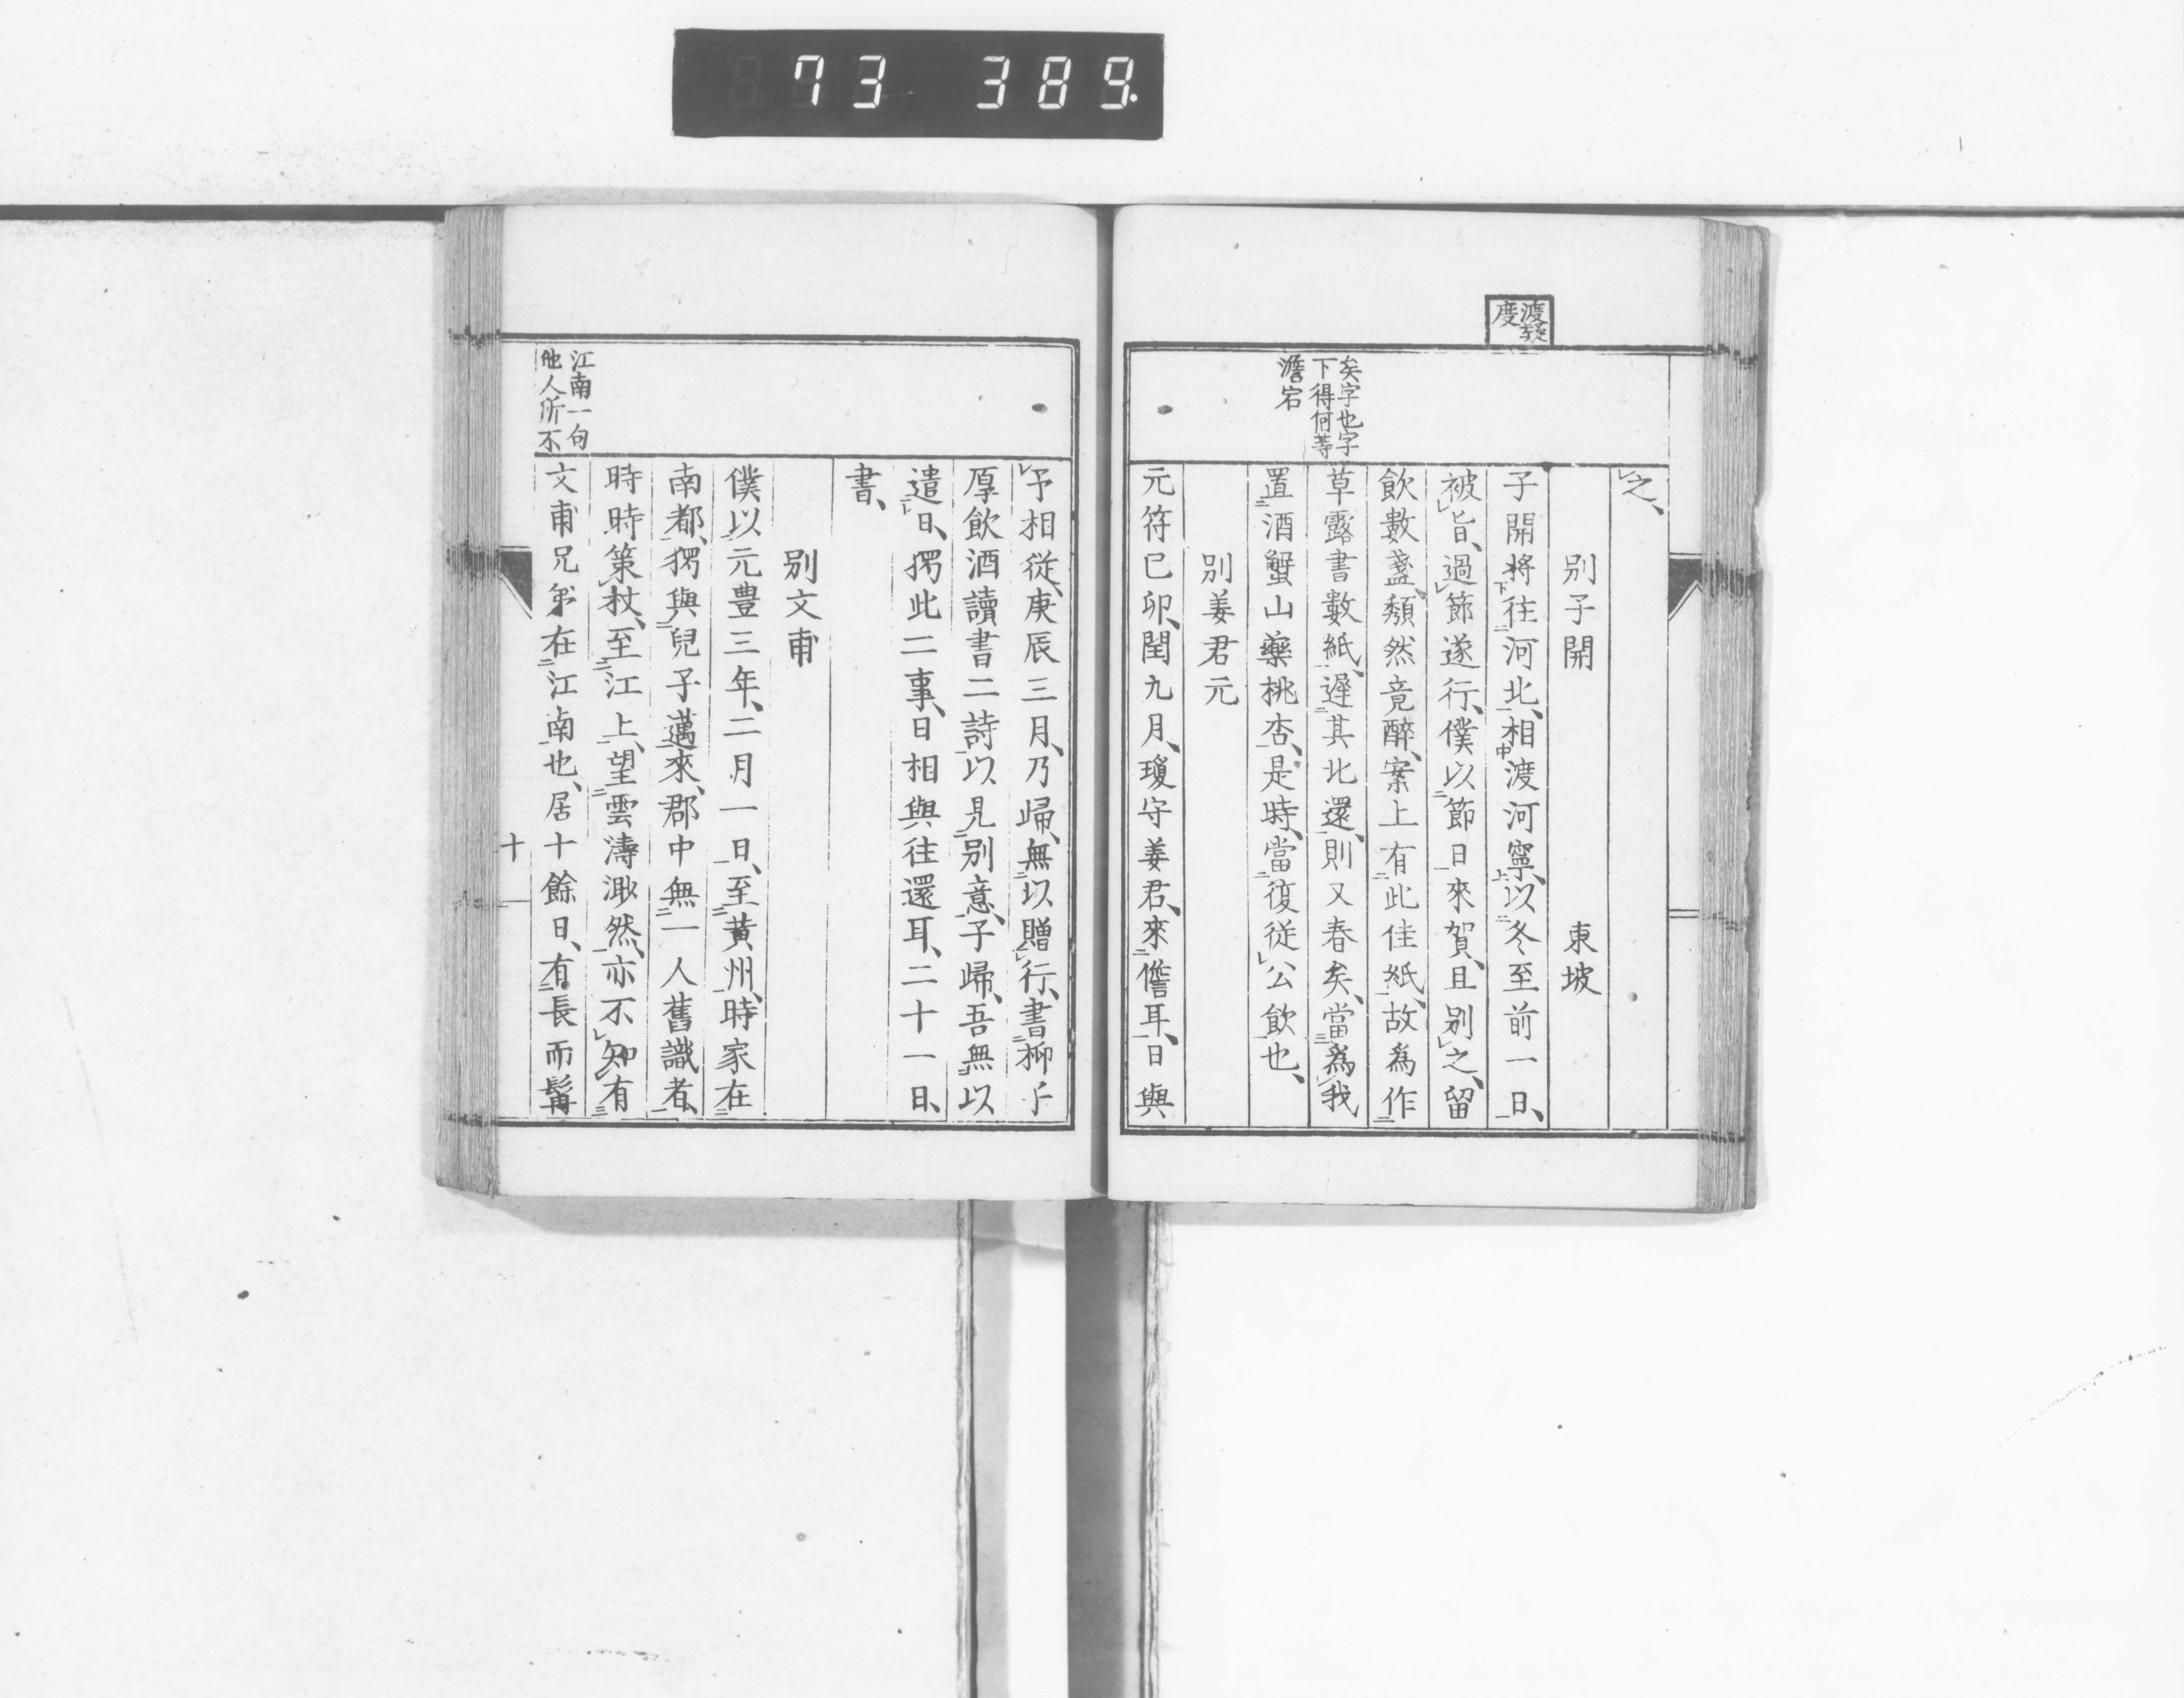 73 389
渡疑
度
矣字也字
下得何等
澹宕
之、
別子開　東坡
子開將往河北、相渡河寧、以冬至前一日、
被旨、過節遂行、僕以節日來賀、且別之、留
飲數盞、頽然竟醉、案上有此佳紙、故爲作
草露書數紙、遲其北還、則又春矣、當爲我
置酒蟹山藥桃杏、是時、當復從公飲也、
別姜君元
元符己卯、閏九月、瓊守姜君、來儋耳、日與
予相從、庚辰三月、乃歸、無以贈行、書柳子
厚飲酒讀書二詩以見別意、子歸、吾無以
遣日、獨此二事、日相與往還耳、二十一日、
書、
別文甫
僕以元豊三年、二月一日、至黃州、時家在
南都、獨與兒子邁來、郡中無一人舊識者、
時時策杖、至江上、望雲濤渺然、亦不知有
江南一句
他人所不
文甫兄弟在江南也、居十餘日、有長而髯
十